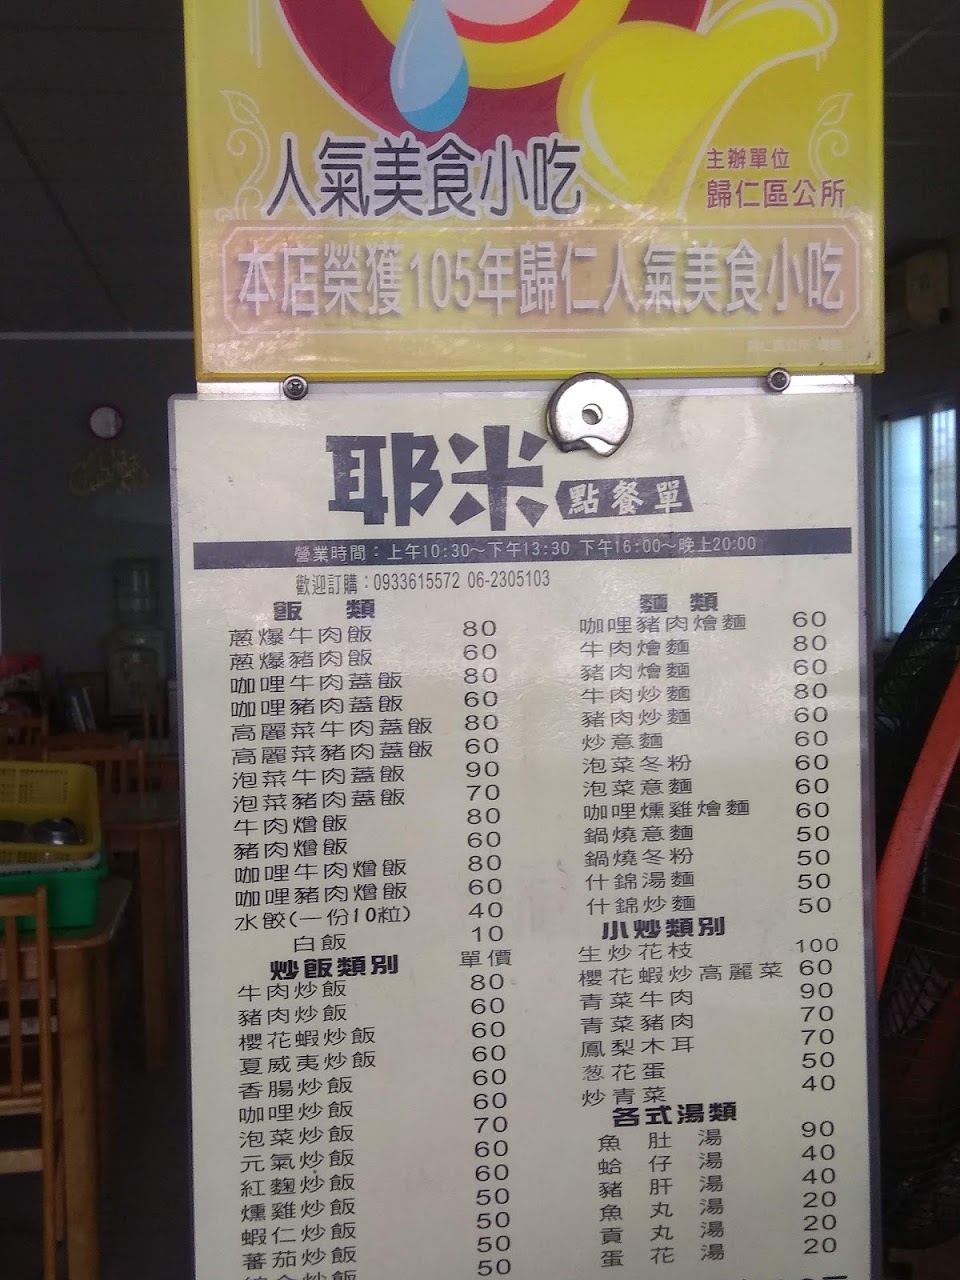 人氣美食小吃
主辦單位
歸仁區公所
本店榮獲105年歸仁人氣美食小吃
耶米 點餐單
營業時間：上午10:30～下午13:30 下午16:00～晚上20:00
歡迎訂購：0933615572 06-2305103
飯類
蔥爆牛肉飯 80
蔥爆豬肉飯 60
咖哩牛肉蓋飯 80
咖哩豬肉蓋飯 60
高麗菜牛肉蓋飯 80
高麗菜豬肉蓋飯 60
泡菜牛肉蓋飯 90
泡菜豬肉蓋飯 70
牛肉燴飯 80
豬肉燴飯 60
咖哩牛肉燴飯 80
咖哩豬肉燴飯 60
水餃(一份10粒) 40
白飯 10
炒飯類別 單價
牛肉炒飯 80
豬肉炒飯 60
櫻花蝦炒飯 60
夏威夷炒飯 60
香腸炒飯 60
咖哩炒飯 60
泡菜炒飯 70
元氣炒飯 60
紅麴炒飯 60
燻雞炒飯 50
蝦仁炒飯 50
蕃茄炒飯 50
炒飯 50
麵類
咖哩豬肉燴麵 60
牛肉燴麵 80
豬肉燴麵 60
牛肉炒麵 80
豬肉炒麵 60
炒意麵 60
泡菜冬粉 60
泡菜意麵 60
咖哩燻雞燴麵 60
鍋燒意麵 50
鍋燒冬粉 50
什錦湯麵 50
什錦炒麵 50
小炒類別
生炒花枝 100
櫻花蝦炒高麗菜 60
青菜牛肉 90
青菜豬肉 70
鳳梨木耳 70
葱花蛋 50
炒青菜 40
各式湯類
魚肚湯 90
蛤仔湯 40
豬肝湯 40
魚丸湯 20
貢丸湯 20
蛋花湯 20